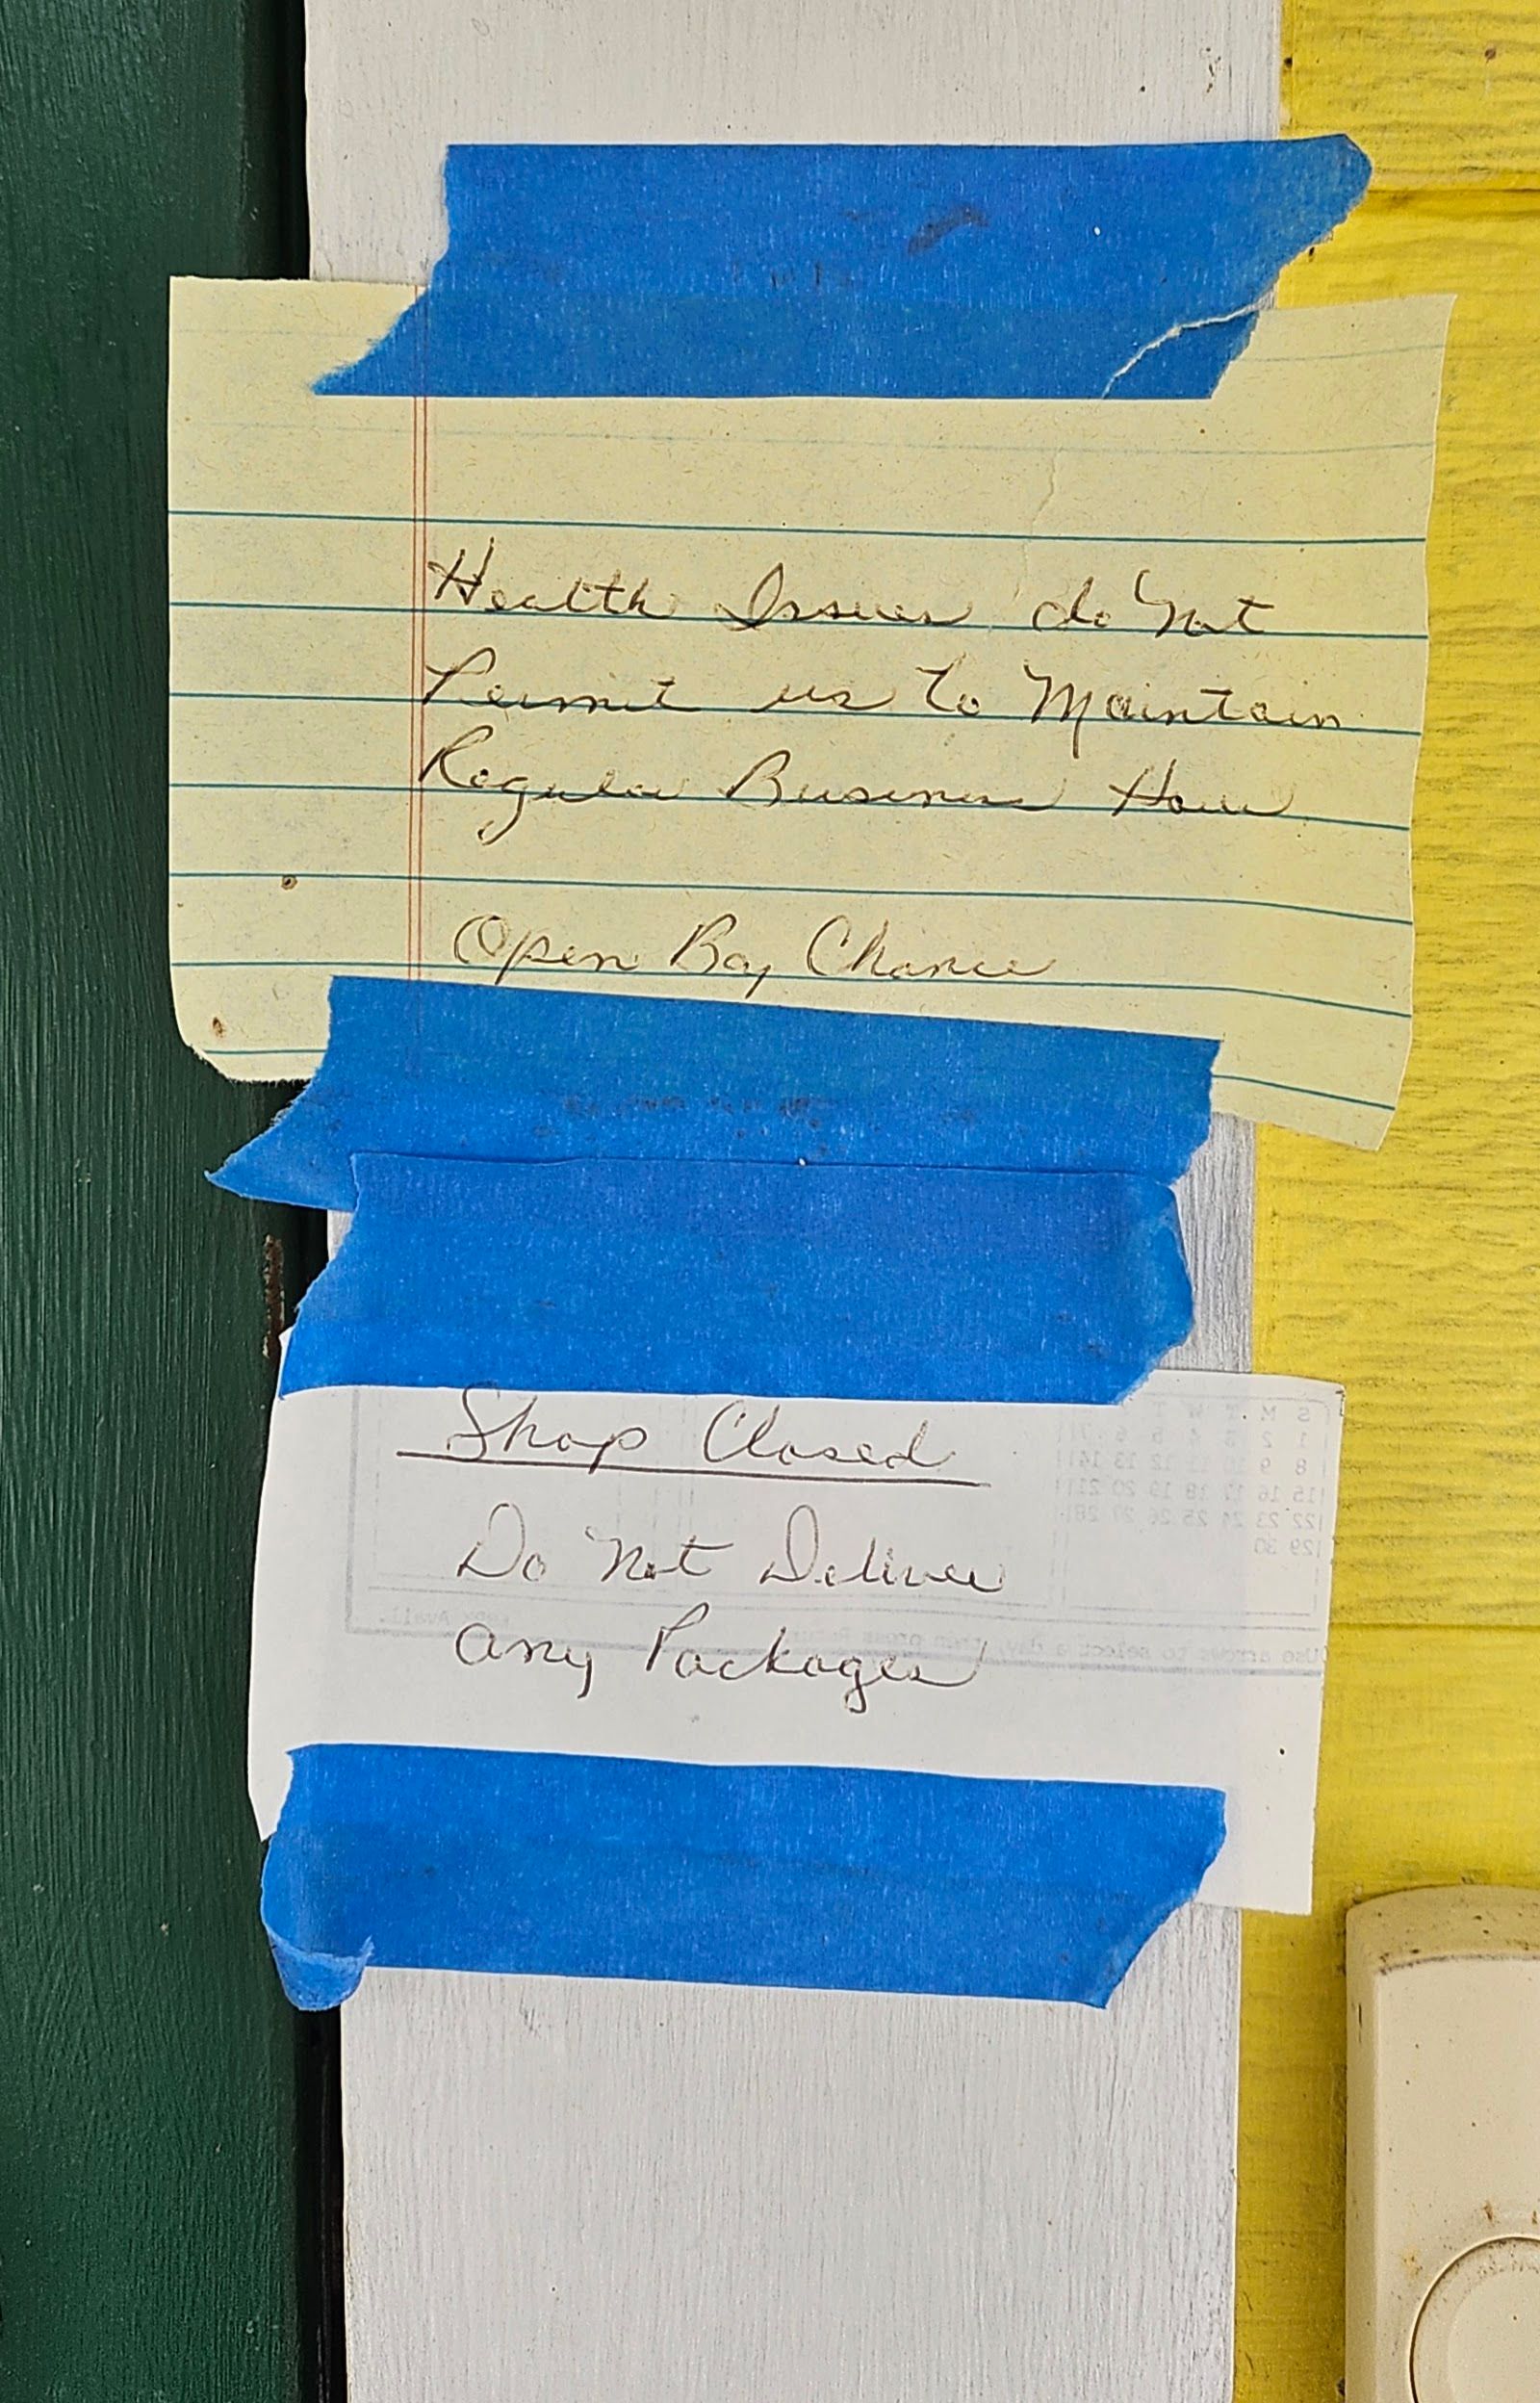 Health Issues do Not
Permit us to Maintain
Regular Business Hour
Open By Chance
Shop Closed
Do Not Deliver
any Packages
S M T W
1 2 3 4 5 6 7
8 9 10 11 12 13 14
15 16 17 18 19 20 21
22 23 24 25 26 27 28
29 30
Use arrows to select a day, then press
Avail.